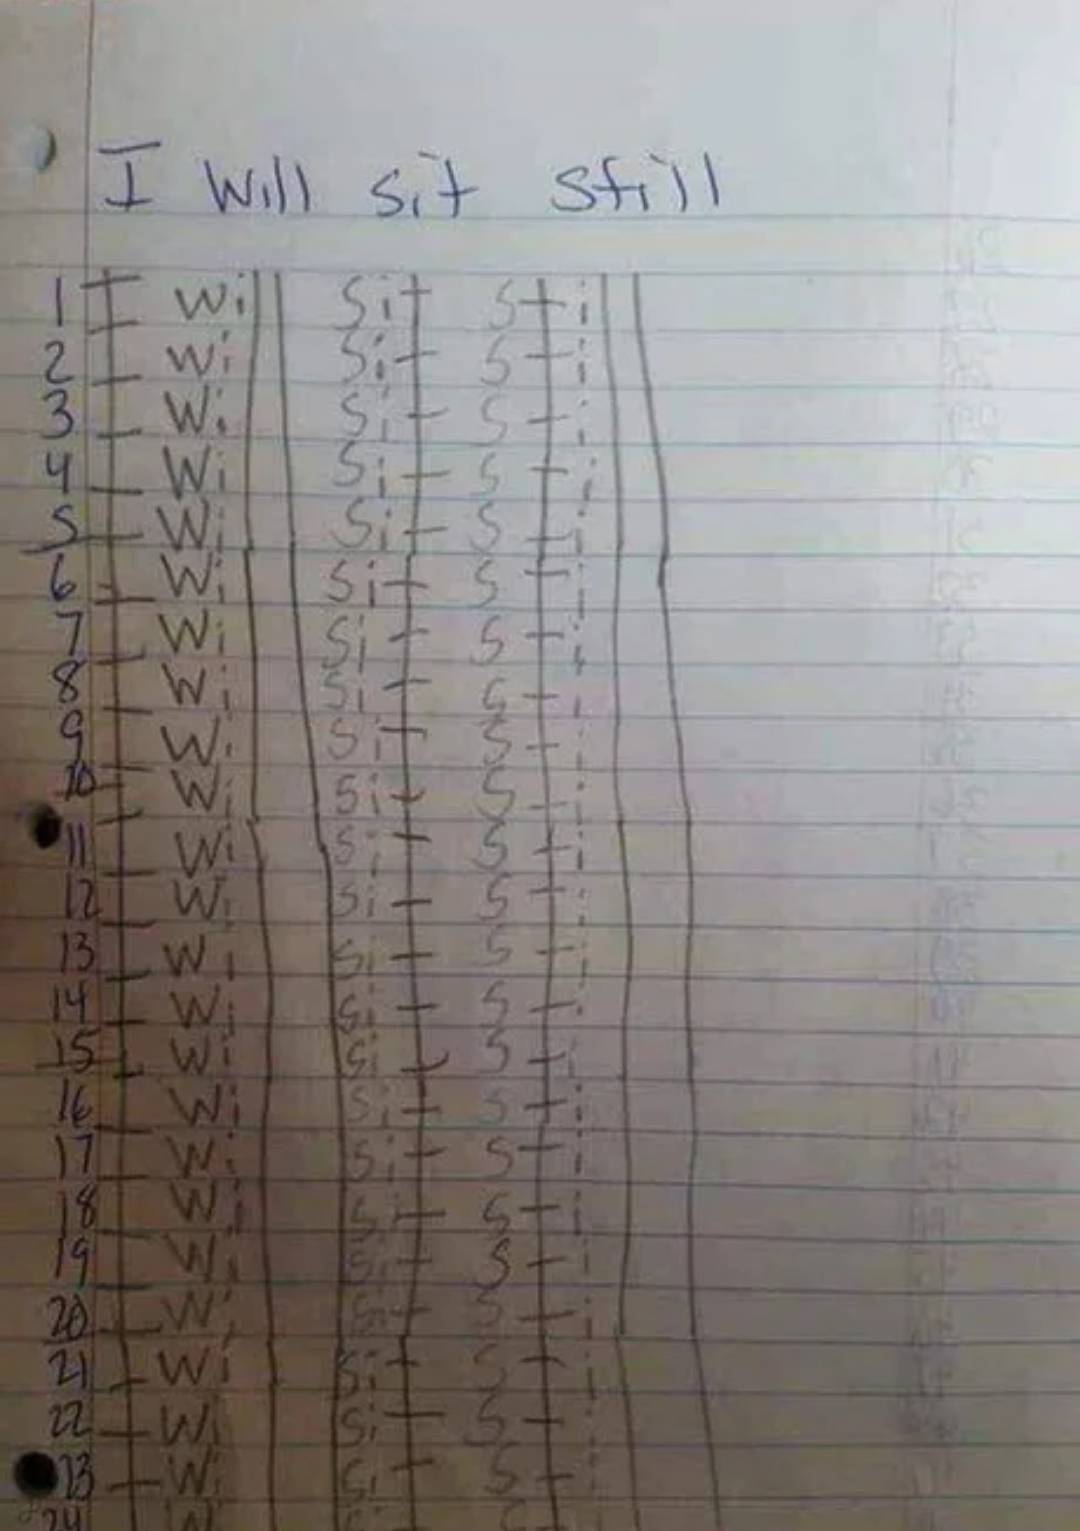 I will sit still
1 I will sit still
2 I will sit still
3 I will sit still
4 I will sit still
5 I will sit still
6 I will sit still
7 I will sit still
8 I will sit still
9 I will sit still
10 I will sit still
11 I will sit still
12 I will sit still
13 I will sit still
14 I will sit still
15 I will sit still
16 I will sit still
17 I will sit still
18 I will sit still
19 I will sit still
20 I will sit still
21 I will sit still
22 I will sit still
23 I will sit still
24